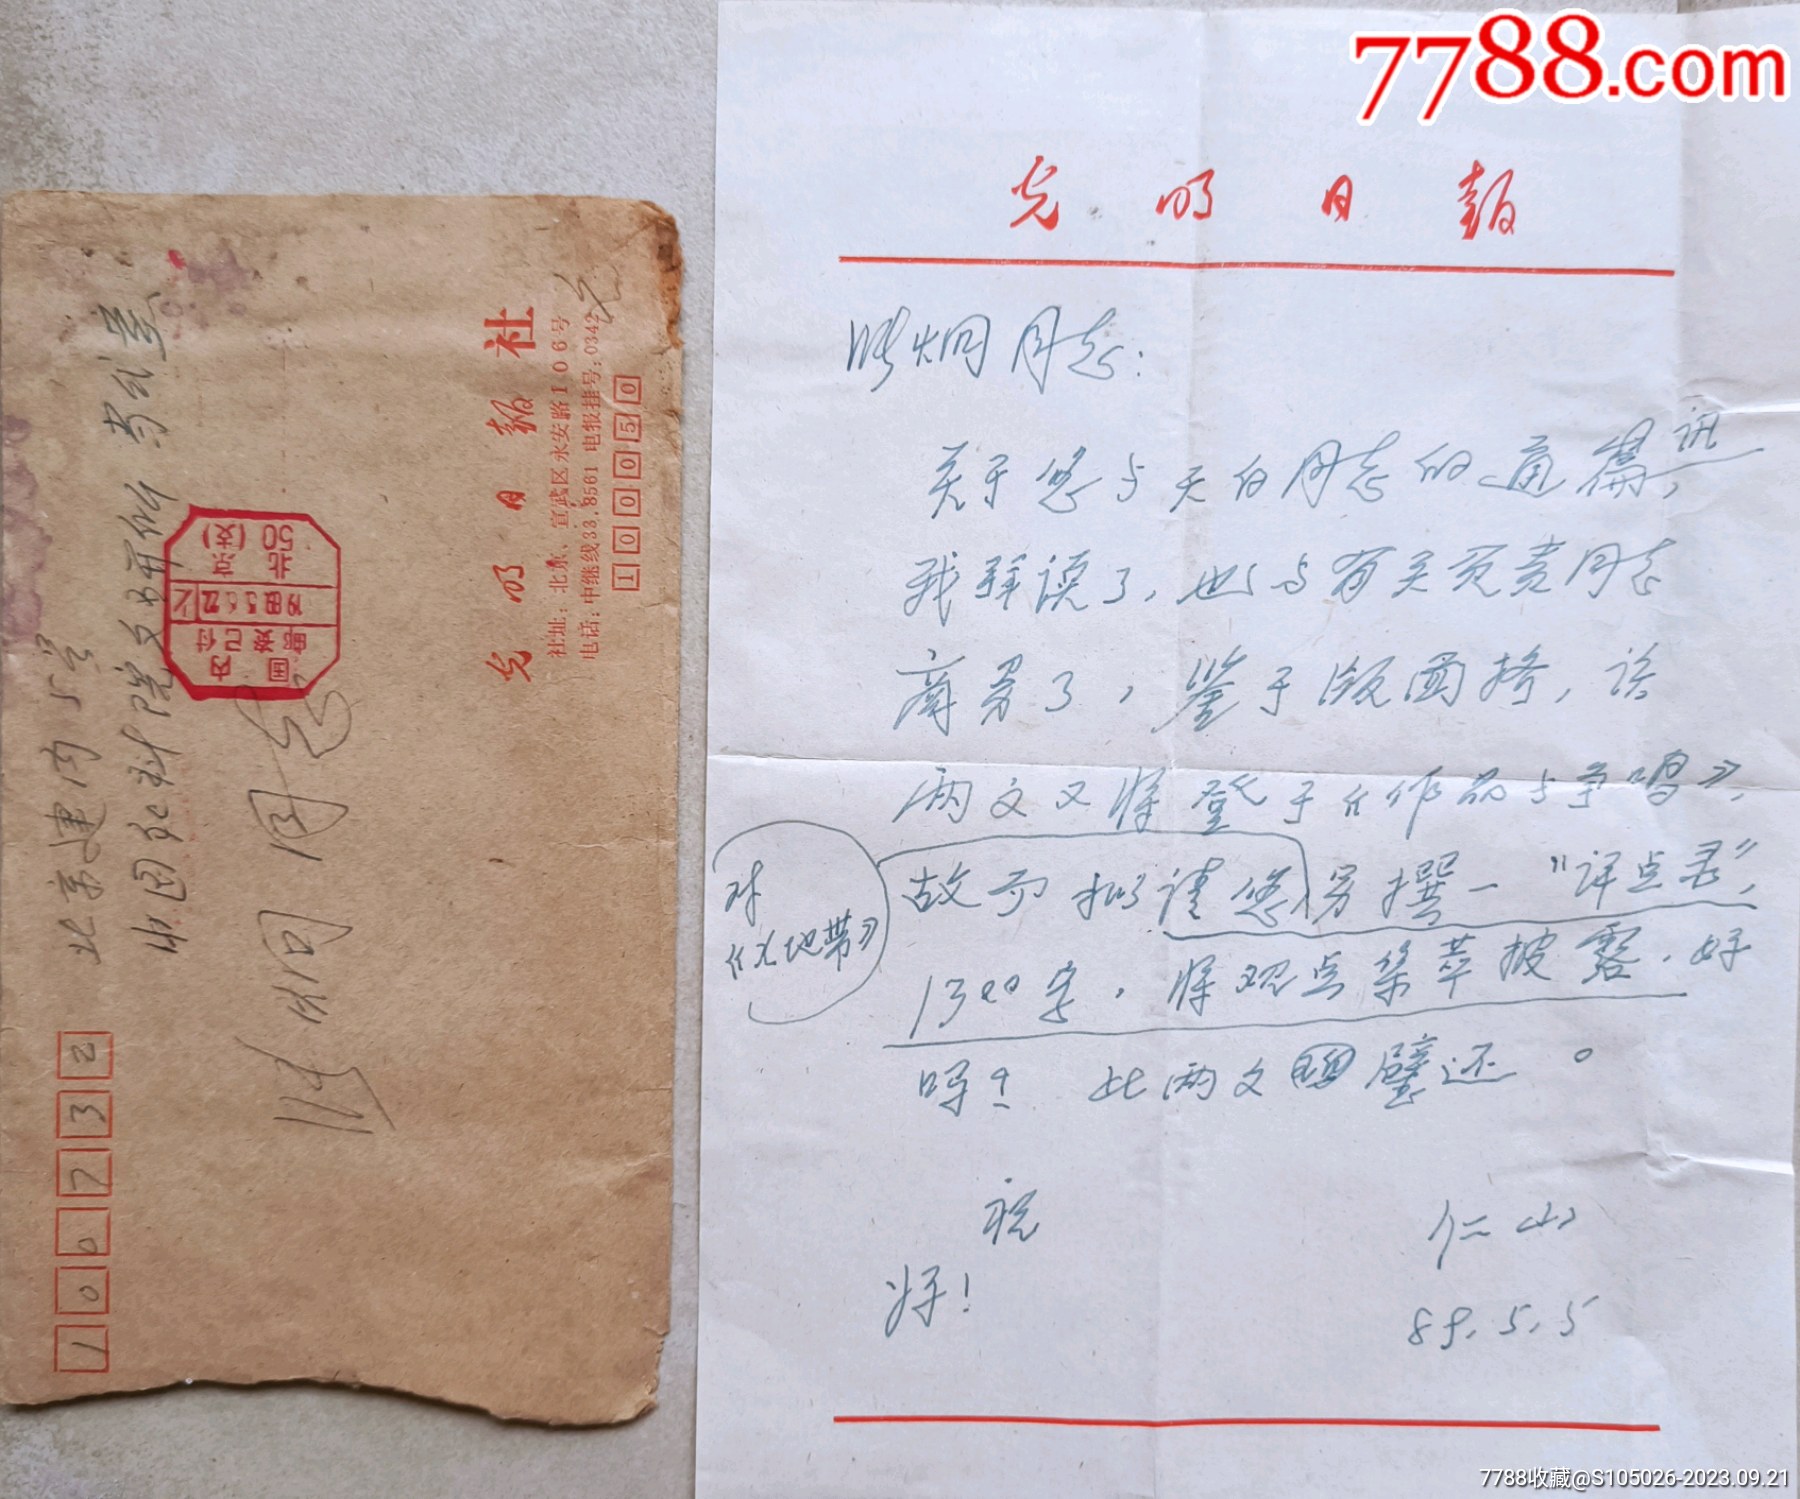 7788.com
光明日报
张炯同志：
关于您与天白同志的通讯，
我拜读了，也与有关负责同志
商量了，鉴于版面挤，该
两文又将登于《作品与争鸣》，
故而拟请您另撰一“评点录”，
对
《X地带》
1300字，将观点集萃披露，好
吗？ 此两文璧还。
祝
好！
仁山
89.5.5
100732
北京建内5号
中国社科院文研所 当代室
张炯同志
国内邮资已付
北京50(支)
光明日报社
社址：北京、宣武区永安路106号
电话：中继线33.8561 电报挂号：0342
100050
7788收藏@S105026-2023.09.21